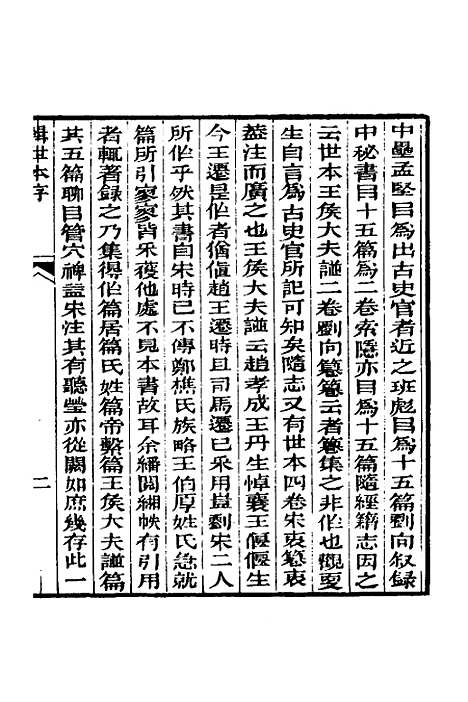 中壘孟堅目爲出古史官者近之班彪目爲十五篇劉向叙録
中秘書目十五篇爲二卷索隱亦目爲十五篇隨經籍志因之
云世本王矦大夫諩二卷劉向篹篹云者篹集之非作也觀夏
生自言爲古史官所記可知矣隨志又有世本四卷宋衷篹衷
葢注而廣之也王矦大夫諩云趙孝成王丹生悼襄王偃偃生
今王遷是作者猶值趙王遷時且司馬遷已采用豈劉宋二人
所作乎然其書自宋時已不傳鄭樵氏族略王伯厚姓氏急就
篇所引寥寥皆采獲他處不見本書故耳余繙閲緗帙有引用
者輒著録之乃集得作篇居篇氏姓篇帝繫篇王矦大夫諩篇
其五篇聊目管穴裨益宋注其有聽瑩亦從闕如庶幾存此一
輯世本序
二